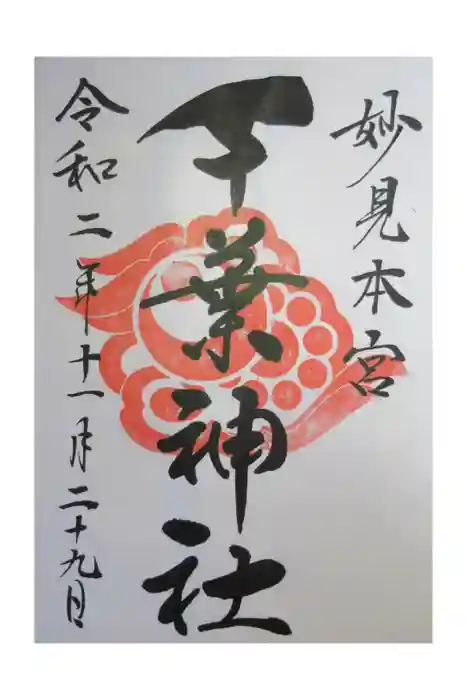 妙見本宮
千葉神社
令和二年十一月二十九日